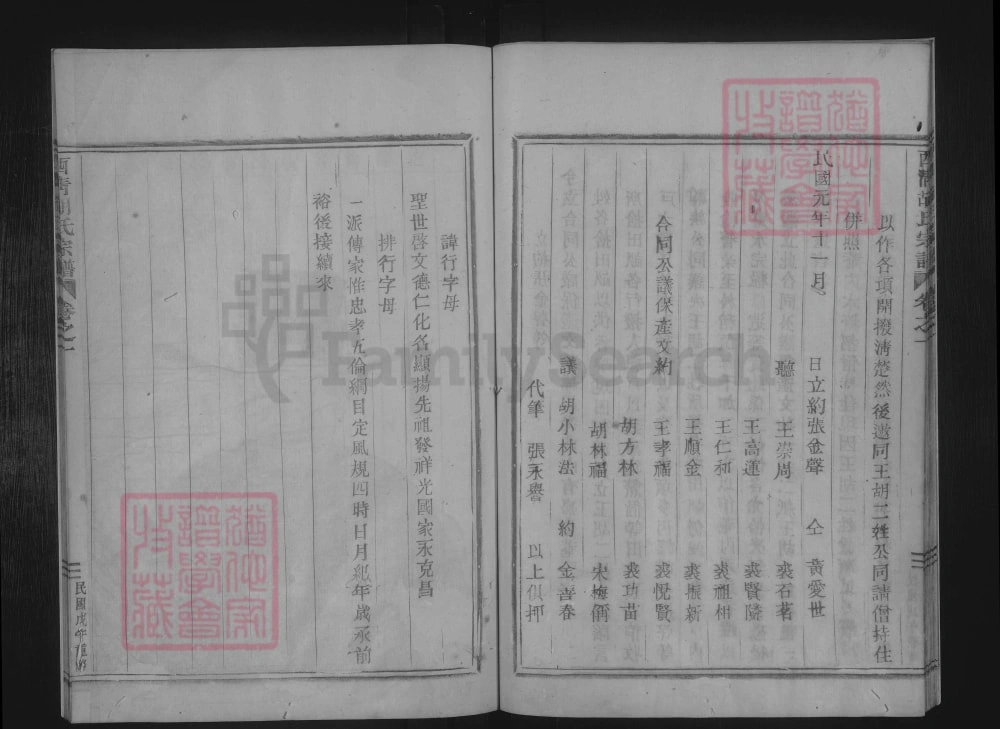 以作各項開撥清楚然後送同王胡二姓公同請僧持住
併照
民國元年十一月 日立約張金聲 仝 黃愛世
聽 王崇周 裘石茗
王高運 裘賢隣
王仁和 裘祖枏
王順金 裘振新
合同公議保產文約 王孝福 裘悅賢
胡方林 裘功苗
胡林福 宋梅僑
議 胡小林法 約 金喜春
代筆 張永譽 以上俱押
諱行字母
聖世啓文德仁化名顯揚先祖發祥光國家永克昌
排行字母
一派傳家惟忠孝五倫綱目定風規四時日月紀年歲承前
裕後接續來
西清胡氏宗譜 卷之一
民國戊午重修
FamilySearch
譜學會